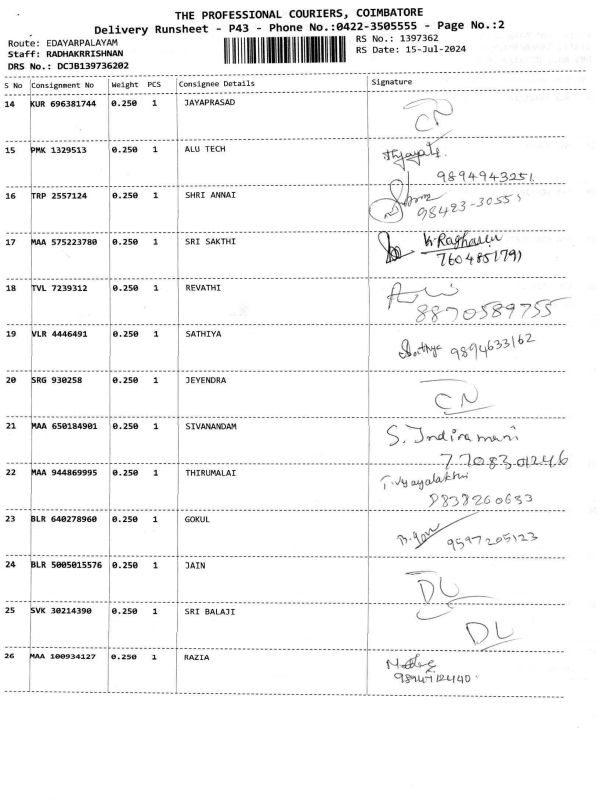 THE PROFESSIONAL COURIERS, COIMBATORE
Delivery Runsheet - P43 - Phone No.:0422-3505555 - Page No.:2
Route: EDAYARPALAYAM
Staff: RADHAKRRISHNAN
DRS No.: DCJB139736202
RS No.: 1397362
RS Date: 15-Jul-2024
S No Consignment No Weight PCS Consignee Details Signature
14 KUR 696381744 0.250 1 JAYAPRASAD CN
15 PMK 1329513 0.250 1 ALU TECH
9894943251
16 TRP 2557124 0.250 1 SHRI ANNAI
98423-30551
17 MAA 575223780 0.250 1 SRI SAKTHI K.Raghavan
7604851791
18 TVL 7239312 0.250 1 REVATHI
8870589755
19 VLR 4446491 0.250 1 SATHIYA Sathya 9894633162
20 SRG 930258 0.250 1 JEYENDRA CN
21 MAA 650184901 0.250 1 SIVANANDAM S. Indiramani
7708301246
22 MAA 944869995 0.250 1 THIRUMALAI
9838260653
23 BLR 640278960 0.250 1 GOKUL 9597205123
24 BLR 5005015576 0.250 1 JAIN DL
25 SVK 30214390 0.250 1 SRI BALAJI DL
26 MAA 100934127 0.250 1 RAZIA